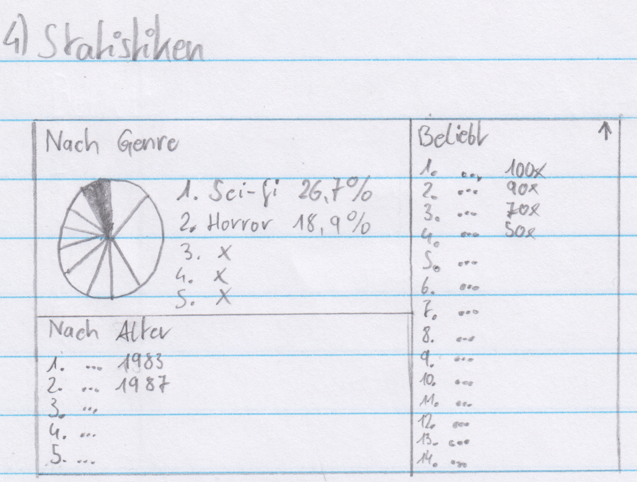 4) Statistiken
Nach Genre
1. Sci-fi 26,7%
2. Horror 18,9%
3. x
4. x
5. x
Nach Alter
1. ... 1983
2. ... 1987
3. ...
4. ...
5. ...
Beliebt ↑
1. ... 100x
2. ... 90x
3. ... 70x
4. ... 50x
5. ...
6. ...
7. ...
8. ...
9. ...
10. ...
11. ...
12. ...
13. ...
14. ...